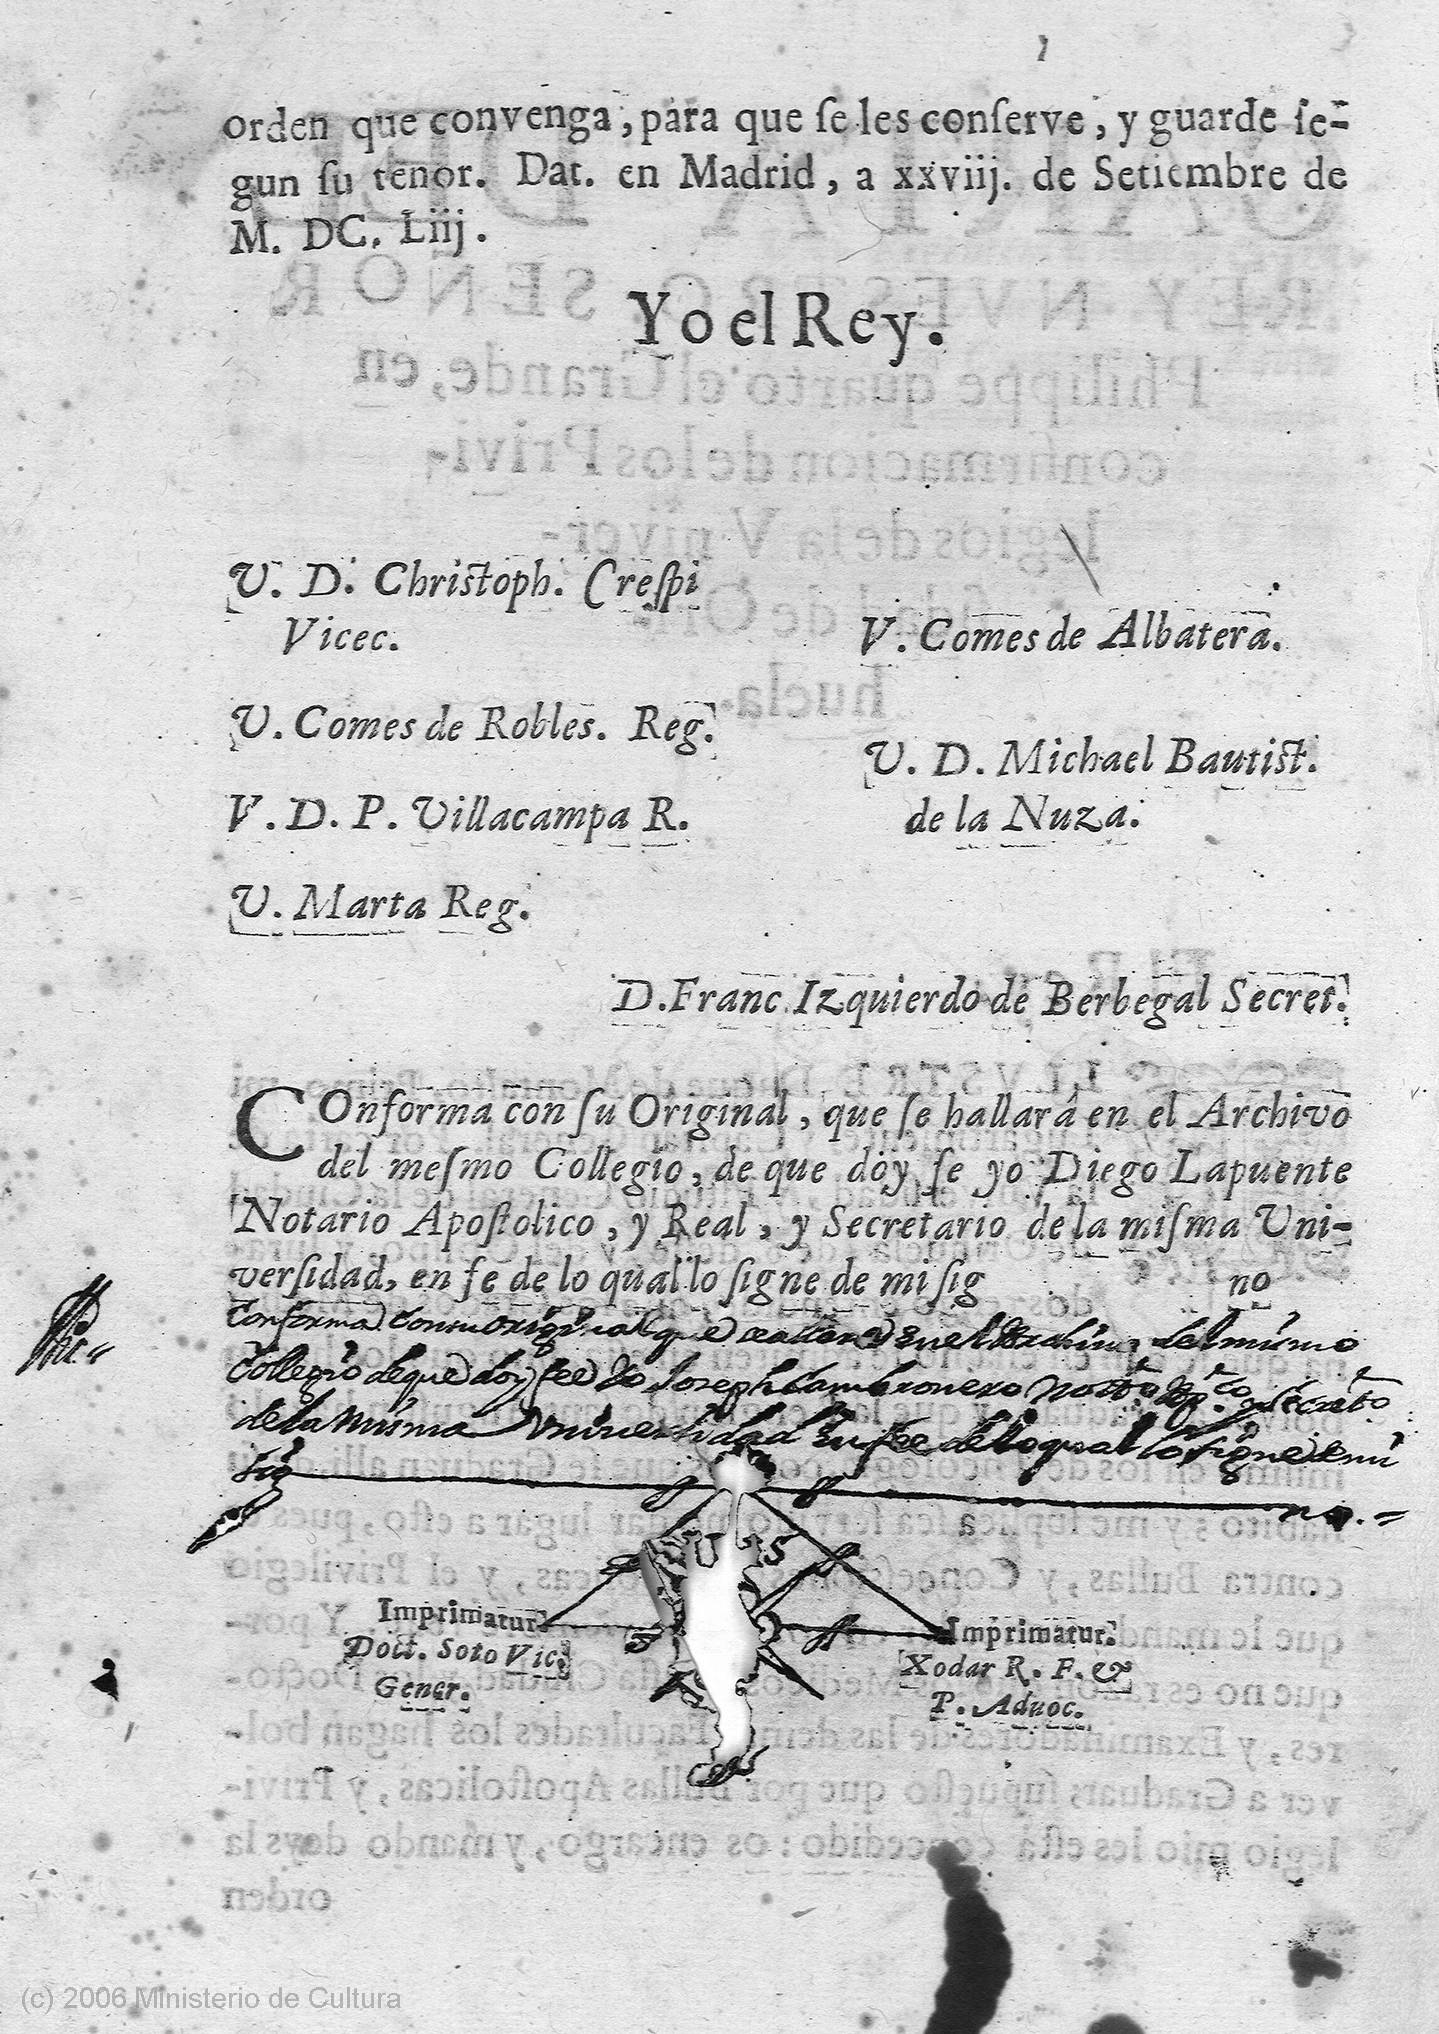 orden que convenga, para que ſe les conſerve, y guarde ſe-
gun ſu tenor. Dat. en Madrid, a xxviij. de Setiembre de
M. DC. Liij.
Yo el Rey.
V. D. Christoph. Creſpi
Vicec.
V. Comes de Albatera.
V. Comes de Robles. Reg.
V. D. Michael Bautist.
de la Nuza.
V. D. P. Villacampa R.
V. Marta Reg.
D. Franc. Izquierdo de Berbegal Secret.
COnforma con ſu Original, que ſe hallarà en el Archivo
del meſmo Collegio, de que doy fe yo Diego Lapuente
Notario Apoſtolico, y Real, y Secretario de la miſma Uni-
verſidad, en fe de lo qual lo ſigne de mi ſig no
Conforma con su original que en el del mismo
Collegio de que doy fee Yo Joseph Cambronero y secretº
de la misma Universidad En fee de lo qual lo signe de mi
sig no.
Imprimatur.
Doct. Soto Vic.
Gener.
Imprimatur.
Xodar R. F. &
P. Aduoc.
(c) 2006 Ministerio de Cultura